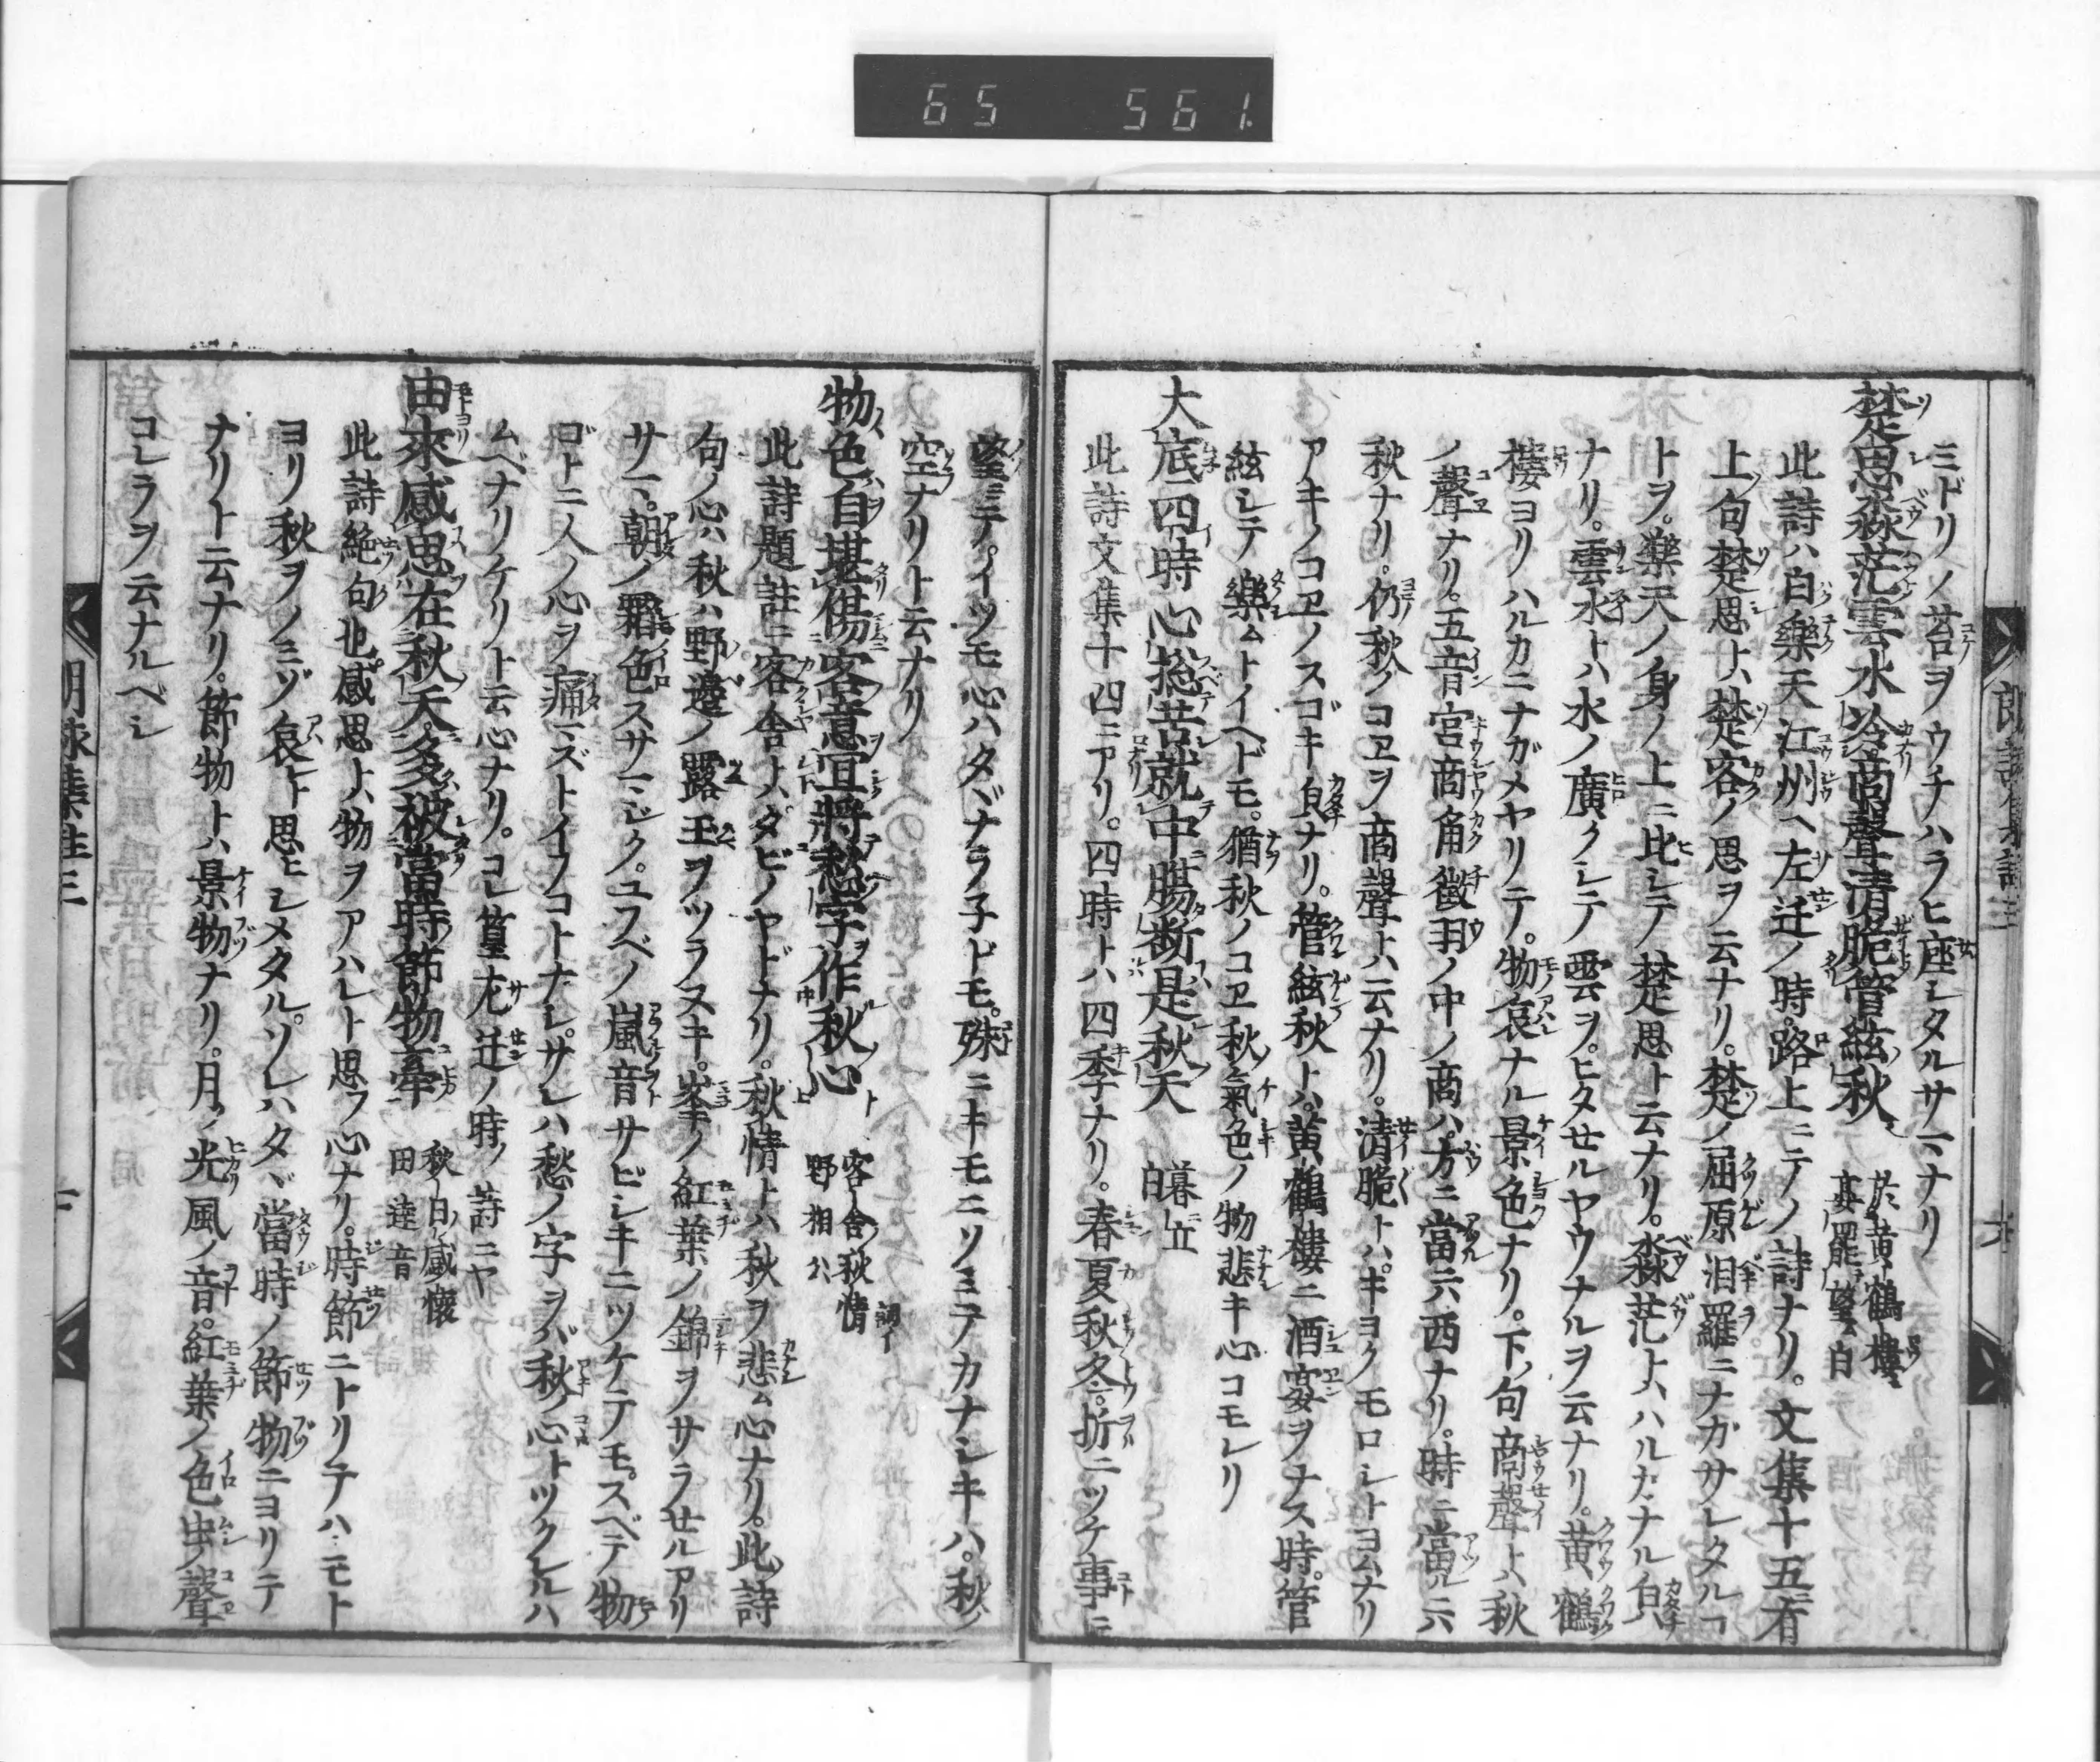 65 561.
ミドリノ苔ヲウチハラヒ座シタルサマナリ
楚思淼茫雲水冷商聲清脆管絃秋 於黄鶴樓宴罷望 白
此詩ハ白樂天江州ヘ左迁ノ時路上ニテノ詩ナリ。文集十五ニ有
上句楚思トハ楚客ノ思ヲ云ナリ。楚ノ屈原汨羅ニナガサレタルコ
トヲ。樂天ノ身ノ上ニ比シテ楚思ト云ナリ。淼茫トハハルカナル㒵
ナリ。雲水トハ水ノ廣クシテ雲ヲヒタせルヤウナルヲ云ナリ。黄鶴
樓ヨリハルカニナガメヤリテ。物哀ナル景色ナリ。下ノ句商聲トハ秋
ノ聲ナリ。五音宮商角徵羽ノ中ノ商ハ。方ニ當六西ナリ。時ニ當ル六
秋ナリ。仍秋ノコヱヲ商聲トハ云ナリ。清脆トハ。キヨクモロシトヨムナリ
アキノコヱノスゴキ㒵ナリ。管絃秋トハ。黄鶴樓ニ酒宴ヲナス時。管
絃シテ樂ムトイヘドモ。猶秋ノコヱ秋ノ氣色ノ物悲キ心コモレリ
大底四時心捴苦就中腸断是秋天 暮立 白
此詩文集十四ニアリ。四時トハ四季ナリ。春夏秋冬。折ニツケ事ニ
望テ。イツモ心ハタヾナラ子ドモ。殊ニキモニソミテカナシキハ。秋ノ
空ナリト云ナリ
物色自堪傷客意宜將愁字作秋心 客舎秋情 調イ 野相公
此詩題註ニ客舎トハ。タビノヤドナリ。秋情トハ秋ヲ悲ム心ナリ。此詩
句ノ心ハ秋ハ野邉ノ露玉ヲツラヌキ。峯ノ紅葉ノ錦ヲサラせルアリ
サマ。朝ノ霜色スサマシク。ユフベノ嵐音サビシキニツケテモ。スベテ物
ゴトニ人ノ心ヲ痛マズトイフコトナシ。サレハ愁ノ字ヲバ秋ノ心トツクレルハ
ムベナリケリト云心ナリ。コレ篁左迁ノ時ノ詩ニヤ
由來感思在秋天多被當時節物牽 秋日感懷 田達音
此詩絶句也感思トハ物ヲアハレト思フ心ナリ。時節ニトリテハモト
ヨリ秋ヲノミゾ哀ト思ヒシメタル。ソレハタヾ當時ノ節物ニヨリテ
ナリト云ナリ。節物トハ景物ナリ。月ノ光風ノ音。紅葉ノ色虫ノ聲
コレラヲ云ナルベシ
朗詠集註三